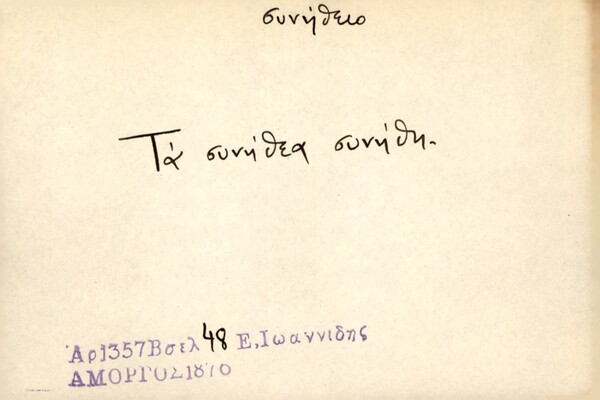 συνήθειο
Τά συνήθεα συνήθη.
Ἀρ1357Βσελ 48 Ε, Ιωαννιδης
ΑΜΟΡΓΟΣ1876